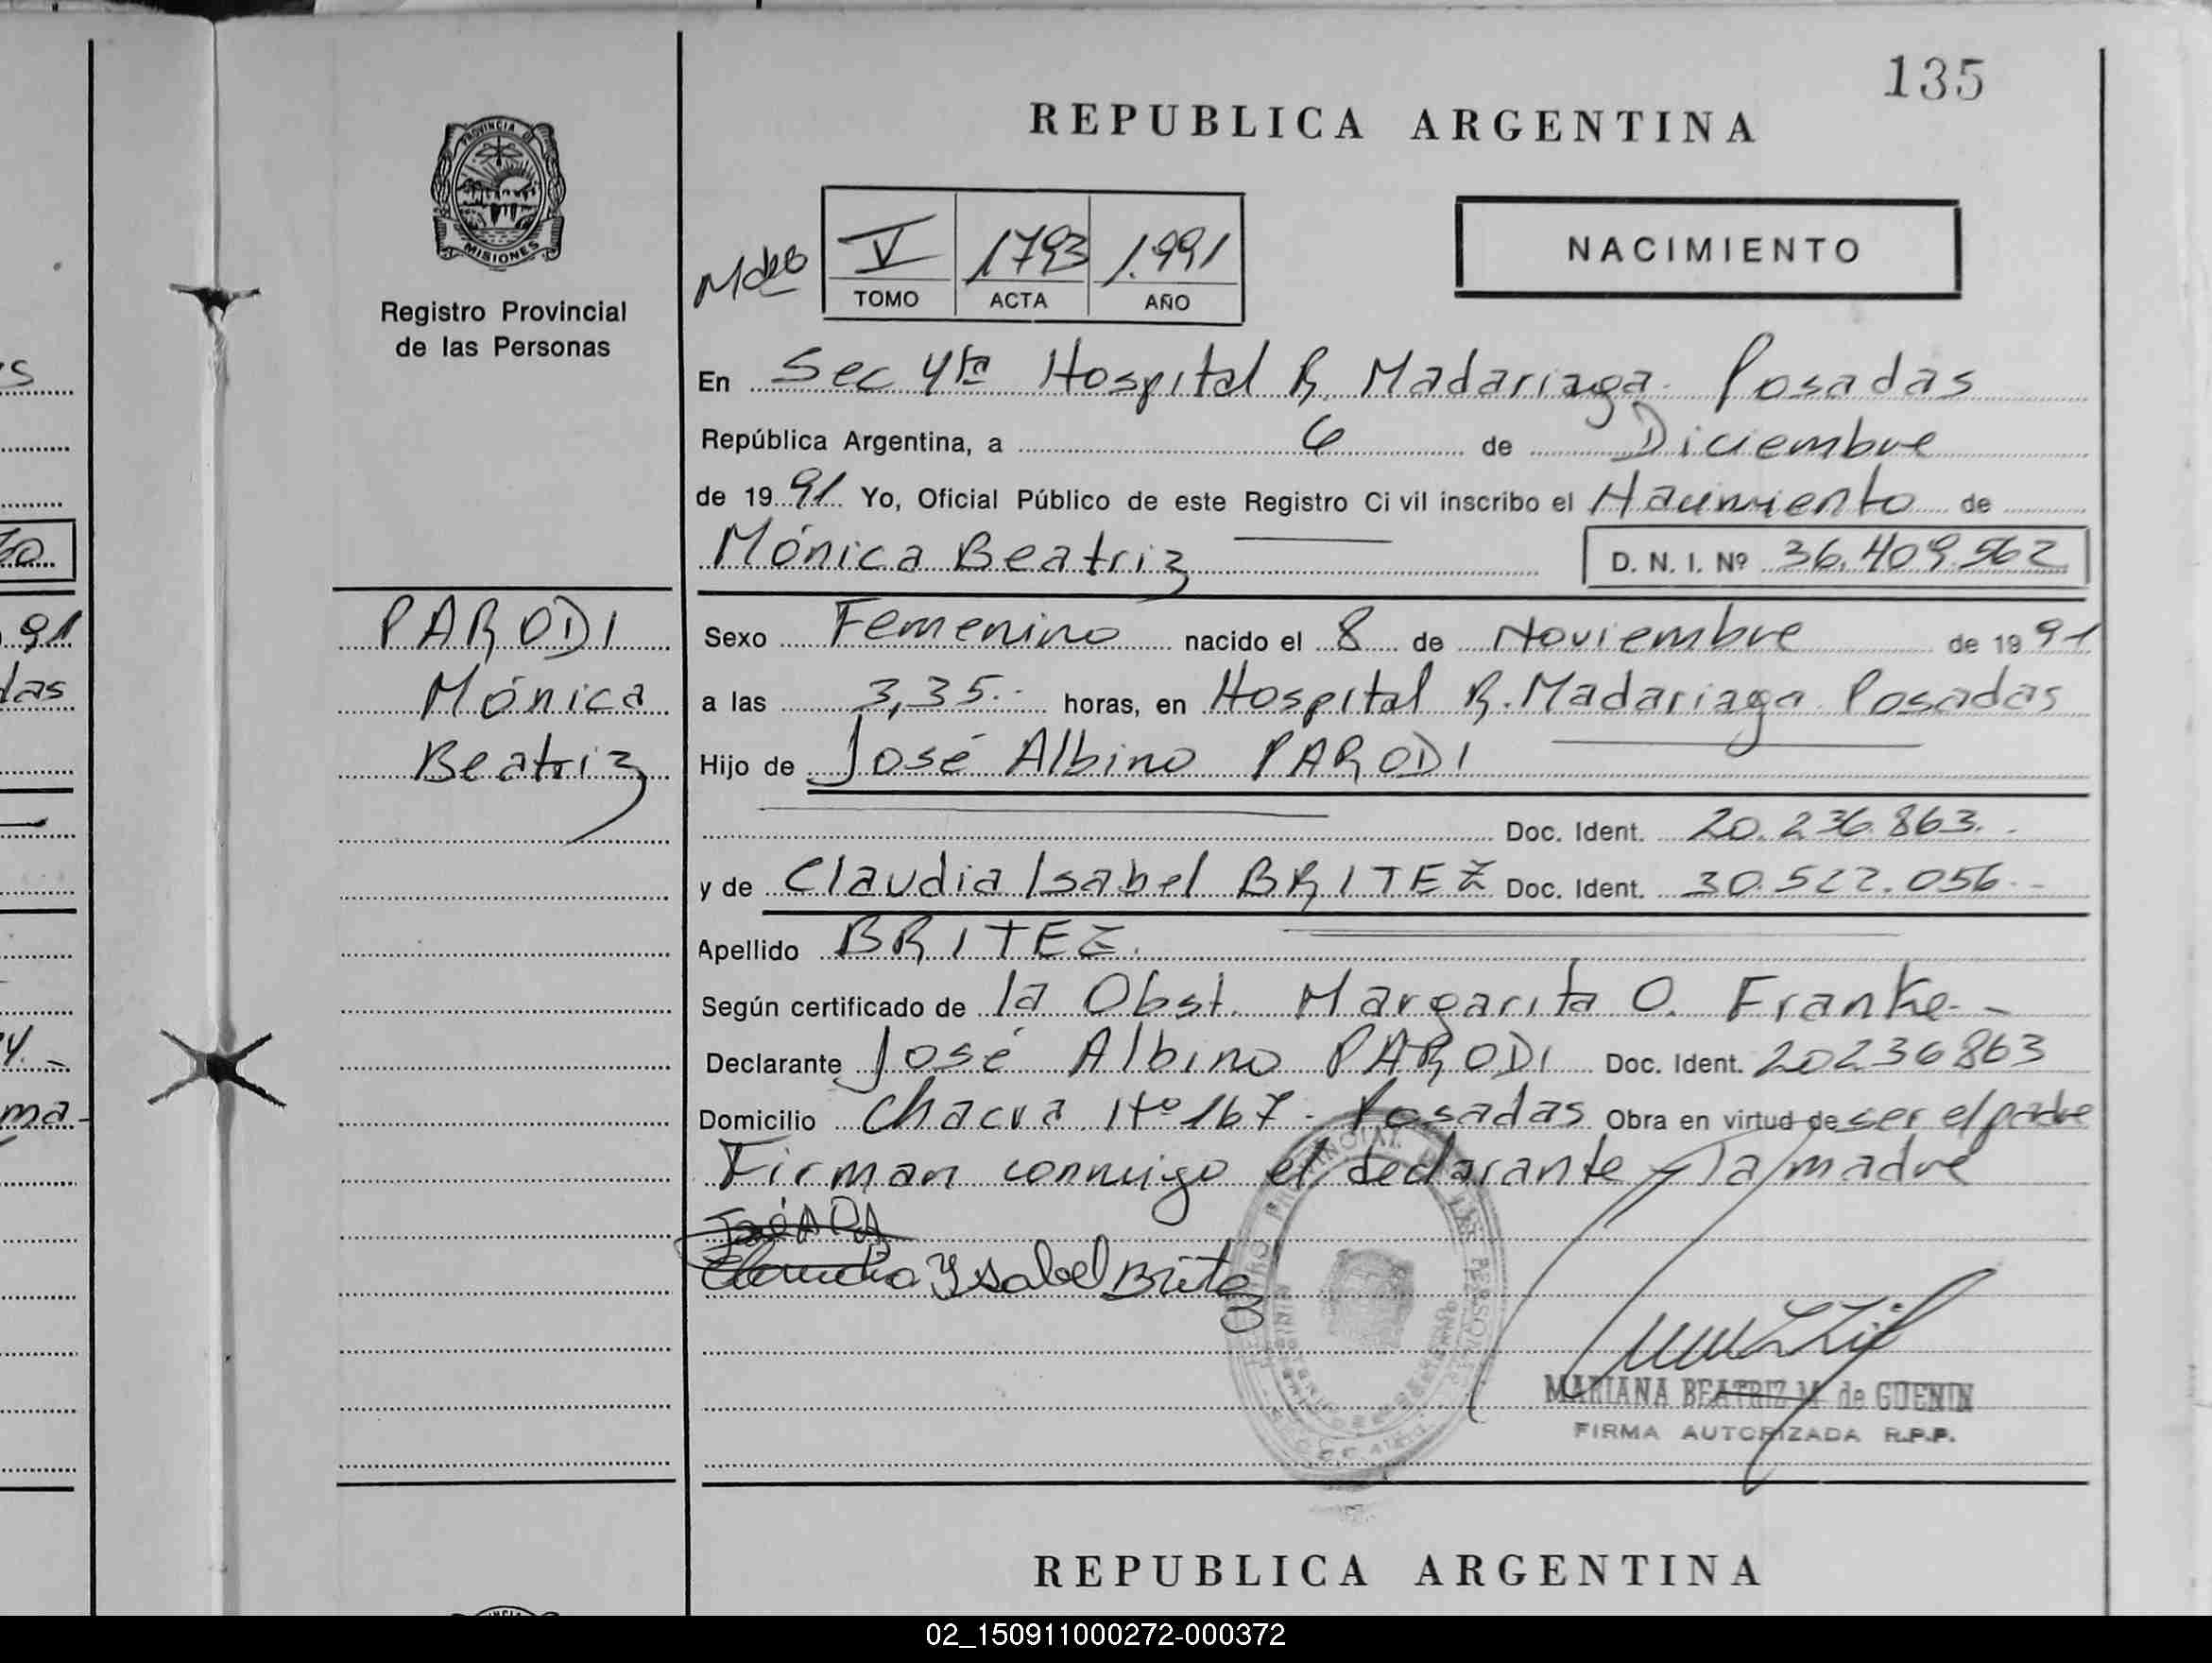 135
REPUBLICA ARGENTINA
PROVINCIA DE
MISIONES
Registro Provincial
de las Personas
V 1793 1.991
TOMO ACTA AÑO
NACIMIENTO
En Sec 4ta Hospital R. Madariaga Posadas
República Argentina, a 6 de Diciembre
de 1991 Yo, Oficial Público de este Registro Civil inscribo el Nacimiento de
Mónica Beatriz D. N. I. Nº 36.409.562
PARODI
Mónica
Beatriz
Sexo Femenino nacido el 8 de Noviembre de 1991
a las 3,35.- horas, en Hospital R. Madariaga Posadas
Hijo de José Albino PARODI
Doc. Ident. 20.236.863.-
y de Claudia Isabel BRITEZ Doc. Ident. 30.522.056.-
Apellido BRITEZ.
Según certificado de la Obst. Margarita O. Franke.-
Declarante José Albino PARODI Doc. Ident. 20236863
Domicilio Chacra Nº 167. Posadas Obra en virtud de ser el padre
Firman conmigo el declarante y la madre
Claudia Ysabel Britez
MARIANA BEATRIZ M. de GUENIN
FIRMA AUTORIZADA R.P.P.
REPUBLICA ARGENTINA
02_150911000272-000372